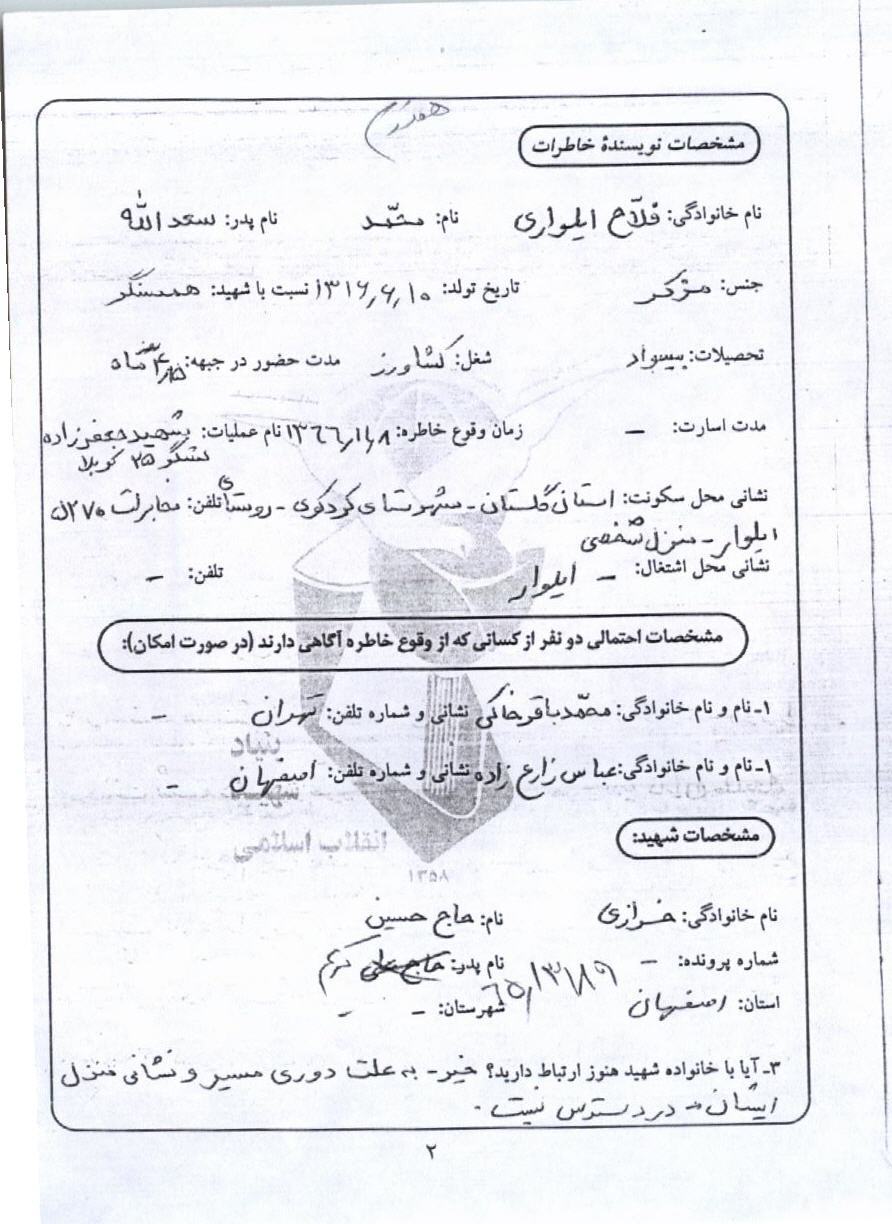 هفدهم
مشخصات نویسندۀ خاطرات
نام خانوادگی: فلاح ایلواری نام: محمّد نام پدر: سعد الله
جنس: مذکر تاریخ تولد: ۱۳۱۶٫۶٫۱۰ نسبت با شهید: همسنگر
تحصیلات: بیسواد شغل: کشاورز مدت حضور در جبهه: ماه
مدت اسارت: – زمان وقوع خاطره: ۱۳۶۶٫۱٫۸ نام عملیات: شهید جعفرزاده
لشگر ۲۵ کربلا
نشانی محل سکونت: استان گلستان - شهرستان کردکوی - روستای تلفن: مخابرات ۲۷۰
ایلوار - منزل شخصی
نشانی محل اشتغال: – ایلوار تلفن: –
مشخصات احتمالی دو نفر از کسانی که از وقوع خاطره آگاهی دارند (در صورت امکان):
۱- نام و نام خانوادگی: محمّدباقر خاکی نشانی و شماره تلفن: تهران –
۱- نام و نام خانوادگی: عباس زارع زاده نشانی و شماره تلفن: اصفهان –
بنیاد
شهید
انقلاب اسلامی
۱۳۵۸
مشخصات شهید:
نام خانوادگی: خرازی نام: حاج حسین
شماره پرونده: – نام پدر: حاج علی کریم
۶۵/۱۳۸۹
استان: اصفهان شهرستان: – –
۳- آیا با خانواده شهید هنوز ارتباط دارید؟ خیر - به علت دوری مسیر و نشانی منزل
ایشان - در دسترس نیست.
۲